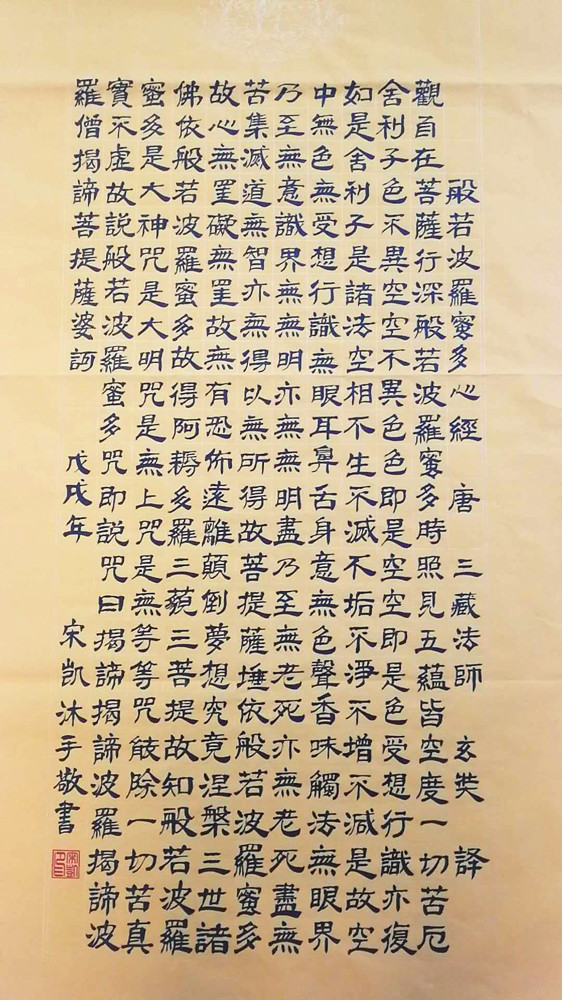 般若波羅蜜多心經 唐 三藏法師 玄奘 譯
觀自在菩薩行深般若波羅蜜多時照見五蘊皆空度一切苦厄
舍利子色不異空空不異色色即是空空即是色受想行識亦復
如是舍利子是諸法空相不生不滅不垢不淨不增不減是故空
中無色無受想行識無眼耳鼻舌身意無色聲香味觸法無眼界
乃至無意識界無無明亦無無明盡乃至無老死亦無老死盡無
苦集滅道無智亦無得以無所得故菩提薩埵依般若波羅蜜多
故心無罣礙無罣故無有恐佈遠離顛倒夢想究竟涅槃三世諸
佛依般若波羅蜜多故得阿耨多羅三藐三菩提故知般若波羅
蜜多是大神咒是大明咒是無上咒是無等等咒能除一切苦真
實不虛故説般若波羅蜜多咒即説咒曰揭諦揭諦波羅揭諦波
羅僧揭諦菩提薩婆訶 戊戌年 宋凱沐手敬書